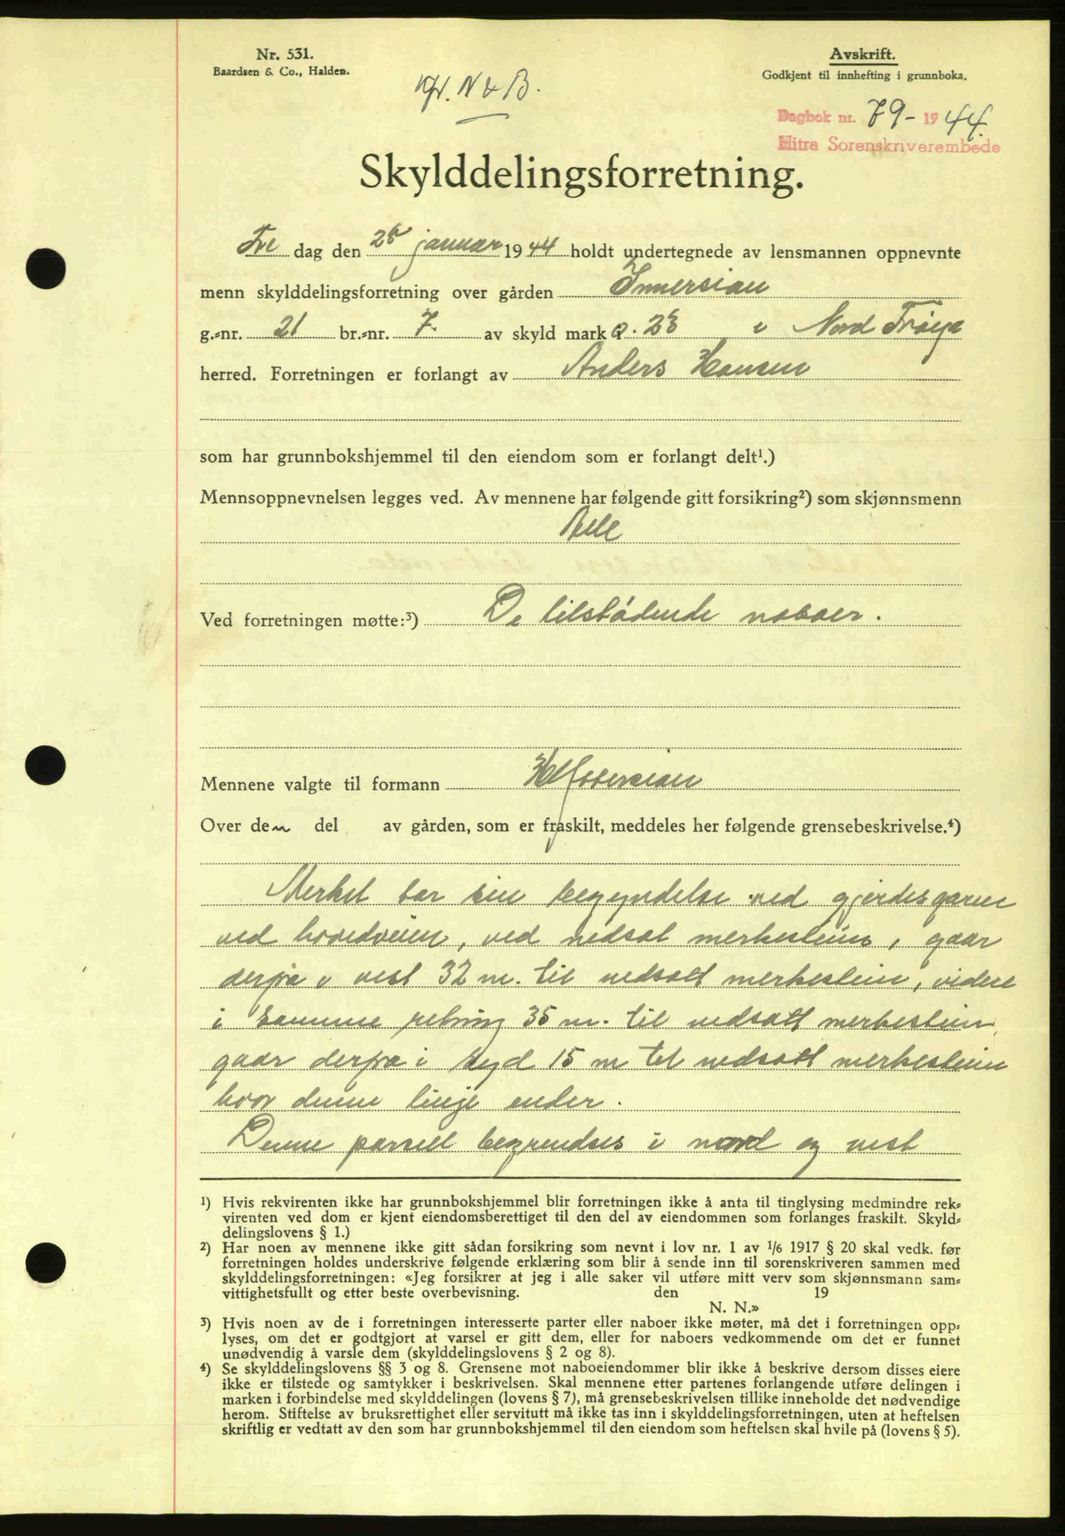 Nr. 531.
Baardsen & Co., Halden.
Avskrift.
Godkjent til innhefting i grunnboka.
N & B.
Dagbok nr. 79 - 1944.
Hitra Sorenskriverembede
Skylddelingsforretning.
Fre dag den januar 1944 holdt undertegnede av lensmannen oppnevnte
menn skylddelingsforretning over gården Innersian
g.-nr. 21 br.-nr. 7. av skyld mark 0.28 i Nord Frøya
herred. Forretningen er forlangt av Anders Hansen
som har grunnbokshjemmel til den eiendom som er forlangt delt¹.)
Mennsoppnevnelsen legges ved. Av mennene har følgende gitt forsikring²) som skjønnsmenn
Alle
Ved forretningen møtte:³) De tilstødende naboer.
Mennene valgte til formann
Over den del av gården, som er fraskilt, meddeles her følgende grensebeskrivelse.⁴)
Merket tar sin begyndelse ved gjerdesgaren
ved hovedveien, ved nedsat merkestein, gaar
derfra i vest 32 m. til nedsatt merkestein, videre
i samme retning 35 m. til nedsatt merkestein,
gaar derfra i syd 15 m til nedsatt merkestein
hvor denne linje ender.
Denne parsell begrendses i nord og vest
¹) Hvis rekvirenten ikke har grunnbokshjemmel blir forretningen ikke å anta til tinglysing medmindre rek-
virenten ved dom er kjent eiendomsberettiget til den del av eiendommen som forlanges fraskilt. Skyld-
delingslovens § 1.)
²) Har noen av mennene ikke gitt sådan forsikring som nevnt i lov nr. 1 av 1/6 1917 § 20 skal vedk. før
forretningen holdes underskrive følgende erklæring som blir å sende inn til sorenskriveren sammen med
skylddelingsforretningen: «Jeg forsikrer at jeg i alle saker vil utføre mitt verv som skjønnsmann sam-
vittighetsfullt og etter beste overbevisning. den 19
N. N.»
³) Hvis noen av de i forretningen interesserte parter eller naboer ikke møter, må det i forretningen opp-
lyses, om det er godtgjort at varsel er gitt dem, eller for naboers vedkommende om det er funnet
unødvendig å varsle dem (skylddelingslovens § 2 og 8).
⁴) Se skylddelingslovens §§ 3 og 8. Grensene mot naboeiendommer blir ikke å beskrive dersom disses eiere
ikke er tilstede og samtykker i beskrivelsen. Skal mennene etter partenes forlangende utføre delingen i
marken i forbindelse med skylddelingen (lovens § 7), må grensebeskrivelsen tillike inneholde det nødvendige
herom. Stiftelse av bruksrettighet eller servitutt må ikke tas inn i skylddelingsforretningen, uten at heftelsen
skriftlig er vedtatt av den som har grunnbokshjemmel til den eiendom som heftelsen skal hvile på (lovens § 5).